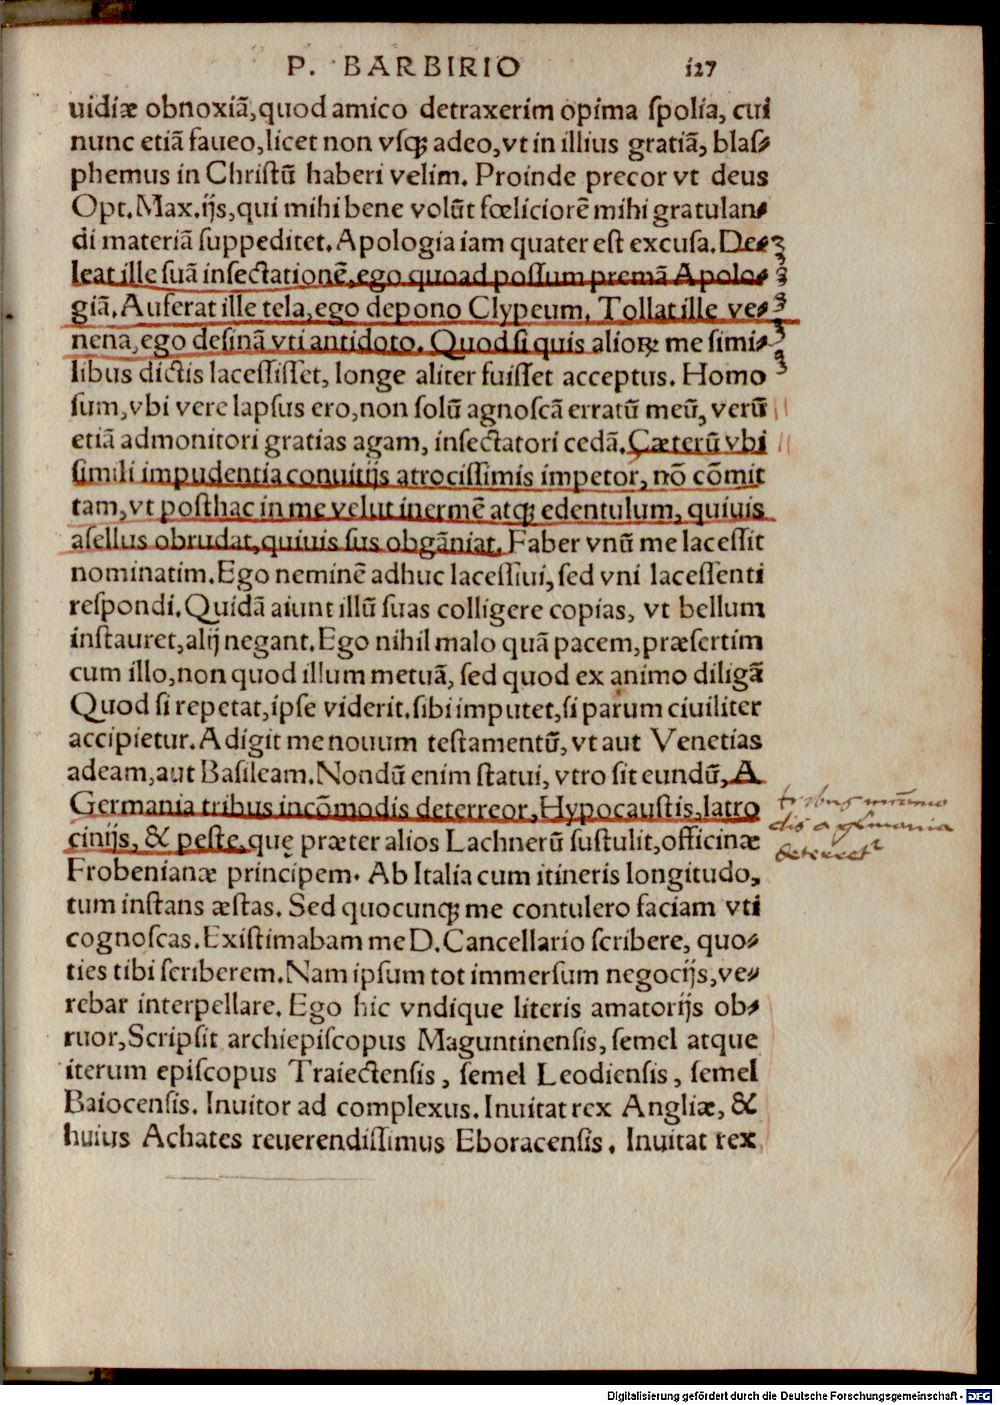 P. BARBIRIO 127
uidiæ obnoxiā, quod amico detraxerim opima spolia, cui
nunc etiā faueo, licet non vsq; adeo, vt in illius gratiā, blas⸗
phemus in Christū haberi velim. Proinde precor vt deus
Opt. Max. ijs, qui mihi bene volūt fœliciorē mihi gratulan⸗
di materiā suppeditet. Apologia iam quater est excusa. De⸗
leat ille suā insectationē, ego quoad possum premā Apolo⸗
giā. Auferat ille tela, ego depono Clypeum. Tollat ille ve⸗
nena, ego desinā vti antidoto. Quod si quis alioꝝ me simi⸗
libus dictis lacessisset, longe aliter fuisset acceptus. Homo
sum, vbi vere lapsus ero, non solū agnoscā erratū meū, verū
etiā admonitori gratias agam, insectatori cedā. Cæterū vbi
simili impudentia conuitijs atrocissimis impetor, nō cōmit
tam, vt posthac in me velut inermē atq; edentulum, quiuis
asellus obrudat, quiuis sus obgāniat. Faber vnū me lacessit
nominatim. Ego neminē adhuc lacessiui, sed vni lacessenti
respondi. Quidā aiunt illū suas colligere copias, vt bellum
instauret, alij negant. Ego nihil malo quā pacem, præsertim
cum illo, non quod illum metuā, sed quod ex animo diligā
Quod si repetat, ipse viderit. sibi imputet, si parum ciuiliter
accipietur. Adigit me nouum testamentū, vt aut Venetias
adeam, aut Basileam. Nondū enim statui, vtro sit eundū, A
Germania tribus incōmodis deterreor, Hypocaustis, latro
cinijs, & peste. quę præter alios Lachnerū sustulit, officinæ
Frobenianæ principem. Ab Italia cum itineris longitudo,
tum instans æstas. Sed quocunq; me contulero faciam vti
cognoscas. Existimabam me D. Cancellario scribere, quo⸗
ties tibi scriberem. Nam ipsum tot immersum negocijs, ve⸗
rebar interpellare. Ego hic vndique literis amatorijs ob⸗
ruor, Scripsit archiepiscopus Maguntinensis, semel atque
iterum episcopus Traiectensis, semel Leodiensis, semel
Baiocensis. Inuitor ad complexus. Inuitat rex Angliæ, &
huius Achates reuerendissimus Eboracensis. Inuitat rex
tribus
dis a germania
deterret
Digitalisierung gefördert durch die Deutsche Forschungsgemeinschaft - DFG